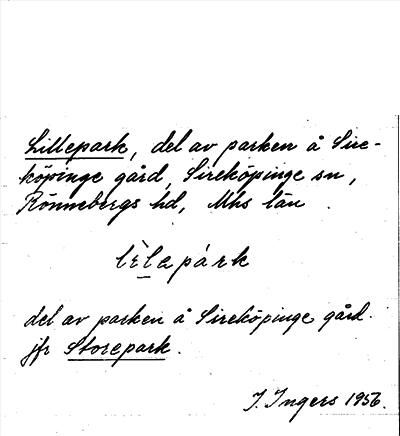 Lillepark, del av parken å Sire-
köpinge gård, Sireköpinge sn,
Rönnebergs hd, Mhs län.
lìlapárk
del av parken å Sireköpinge gård.
jfr Storepark.
I. Ingers 1956.